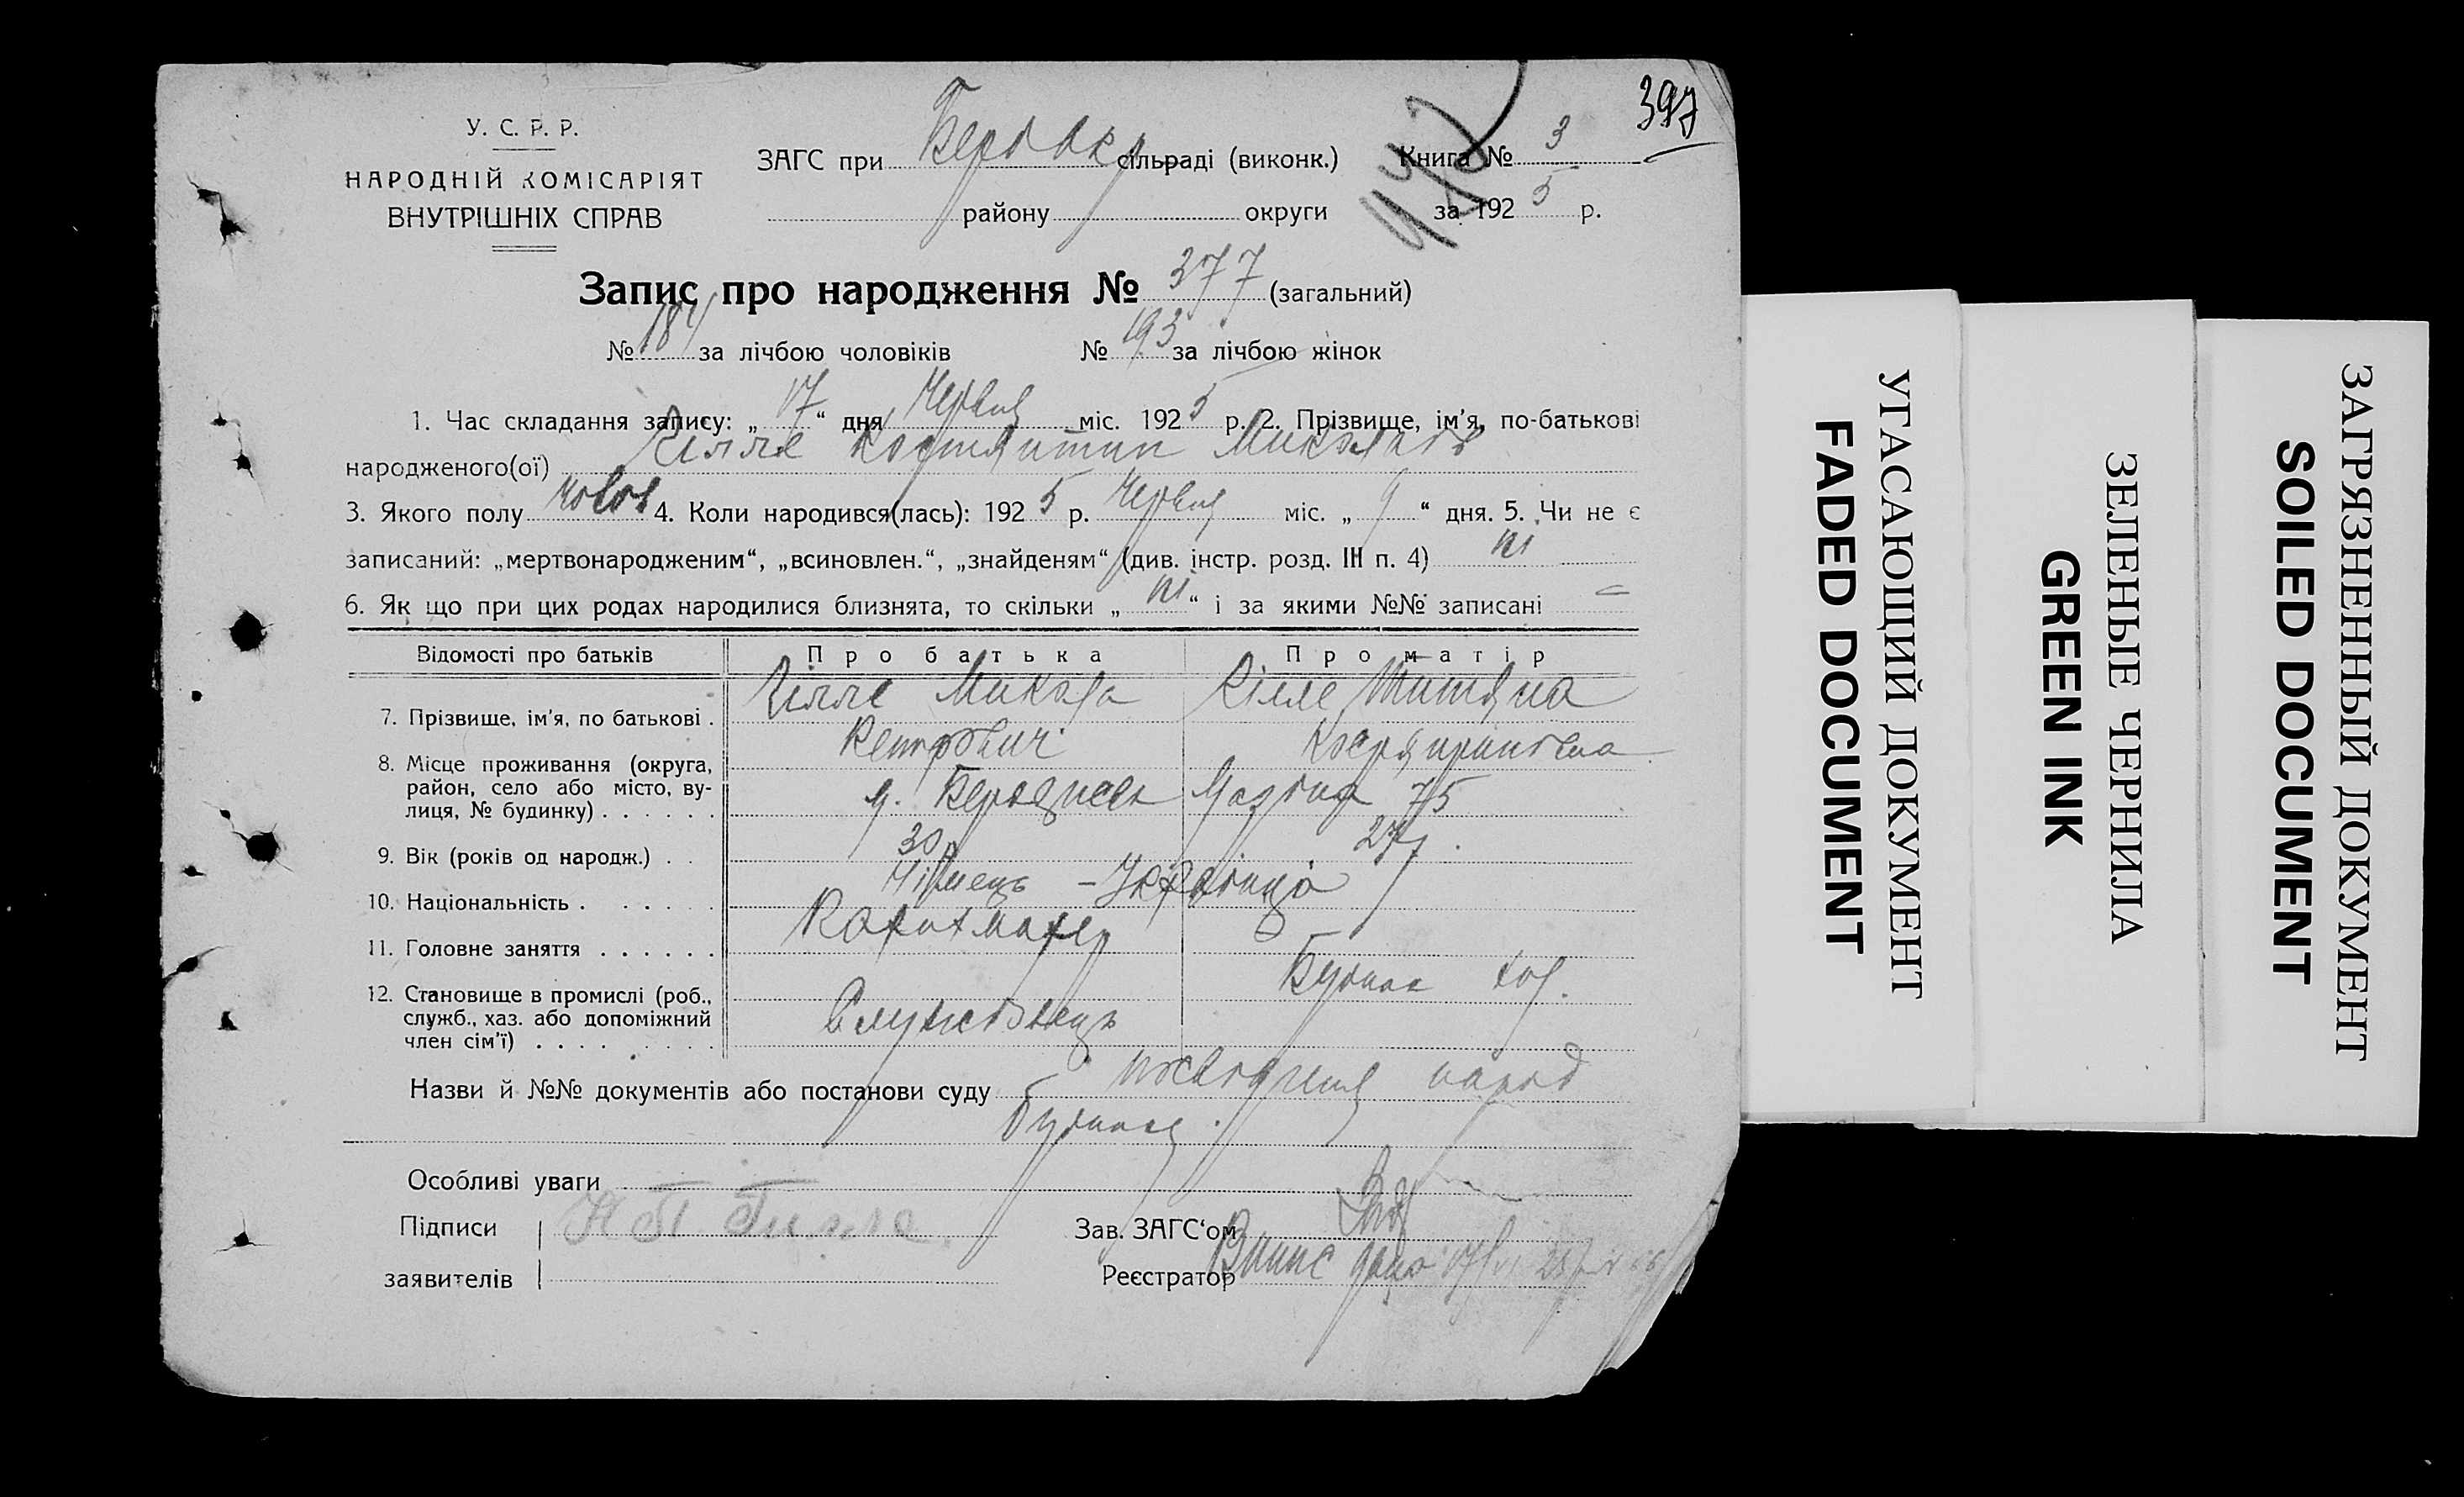 397
442
У. С. Р. Р.
НАРОДНІЙ КОМІСАРІЯТ
ВНУТРІШНІХ СПРАВ
ЗАГС при сільраді (виконк.) Книга № 3
району округи за 1925 р.
Запис про народження № 377 (загальний)
№ 184 за лічбою чоловіків № 193 за лічбою жінок
1. Час складання запису: „17“ дня Червня міс. 1925 р. 2. Прізвище, ім'я, по-батькові
народженого(ої) Гілле Костянтин Миколаїв
3. Якого полу чолов 4. Коли народився(лась): 1925 р. Червня міс. „9“ дня. 5. Чи не є
записаний: „мертвонародженим“, „всиновлен.“, „знайденям“ (див. інстр. розд. III п. 4) ні
6. Як що при цих родах народилися близнята, то скільки „ні“ і за якими №№ записані —
Відомості про батьків Про батька Про матір
7. Прізвище, ім'я, по батькові . Гілле Микола Петрович Гілле Титяна
8. Місце проживання (округа, район, село або місто, вулиця, № будинку) . . . . . . 75
9. Вік (років од народж.) . . 30р 27р.
10. Національність . . . . . . Німець - Українка
11. Головне заняття . . . . . .
12. Становище в промислі (роб., служб., хаз. або допоміжний член сім'ї) . . . . . . . . Службовець
Назви й №№ документів або постанови суду посвідченя народ
будинка.
Особливі уваги
Підписи Н П Гилле Зав. ЗАГС'ом
заявителів Реєстратор
Випис дана
УГАСАЮЩИЙ ДОКУМЕНТ
FADED DOCUMENT
ЗЕЛЕНЫЕ ЧЕРНИЛА
GREEN INK
ЗАГРЯЗНЕННЫЙ ДОКУМЕНТ
SOILED DOCUMENT